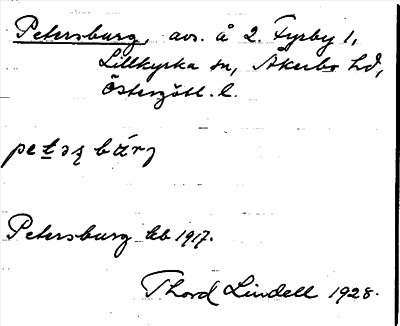 Petersburg, avs. å 2. Fyrby 1,
Lillkyrka sn, Åkerbo hd,
Östergötl. l.
Petersburg kb 1917.
Thord Lindell 1928.